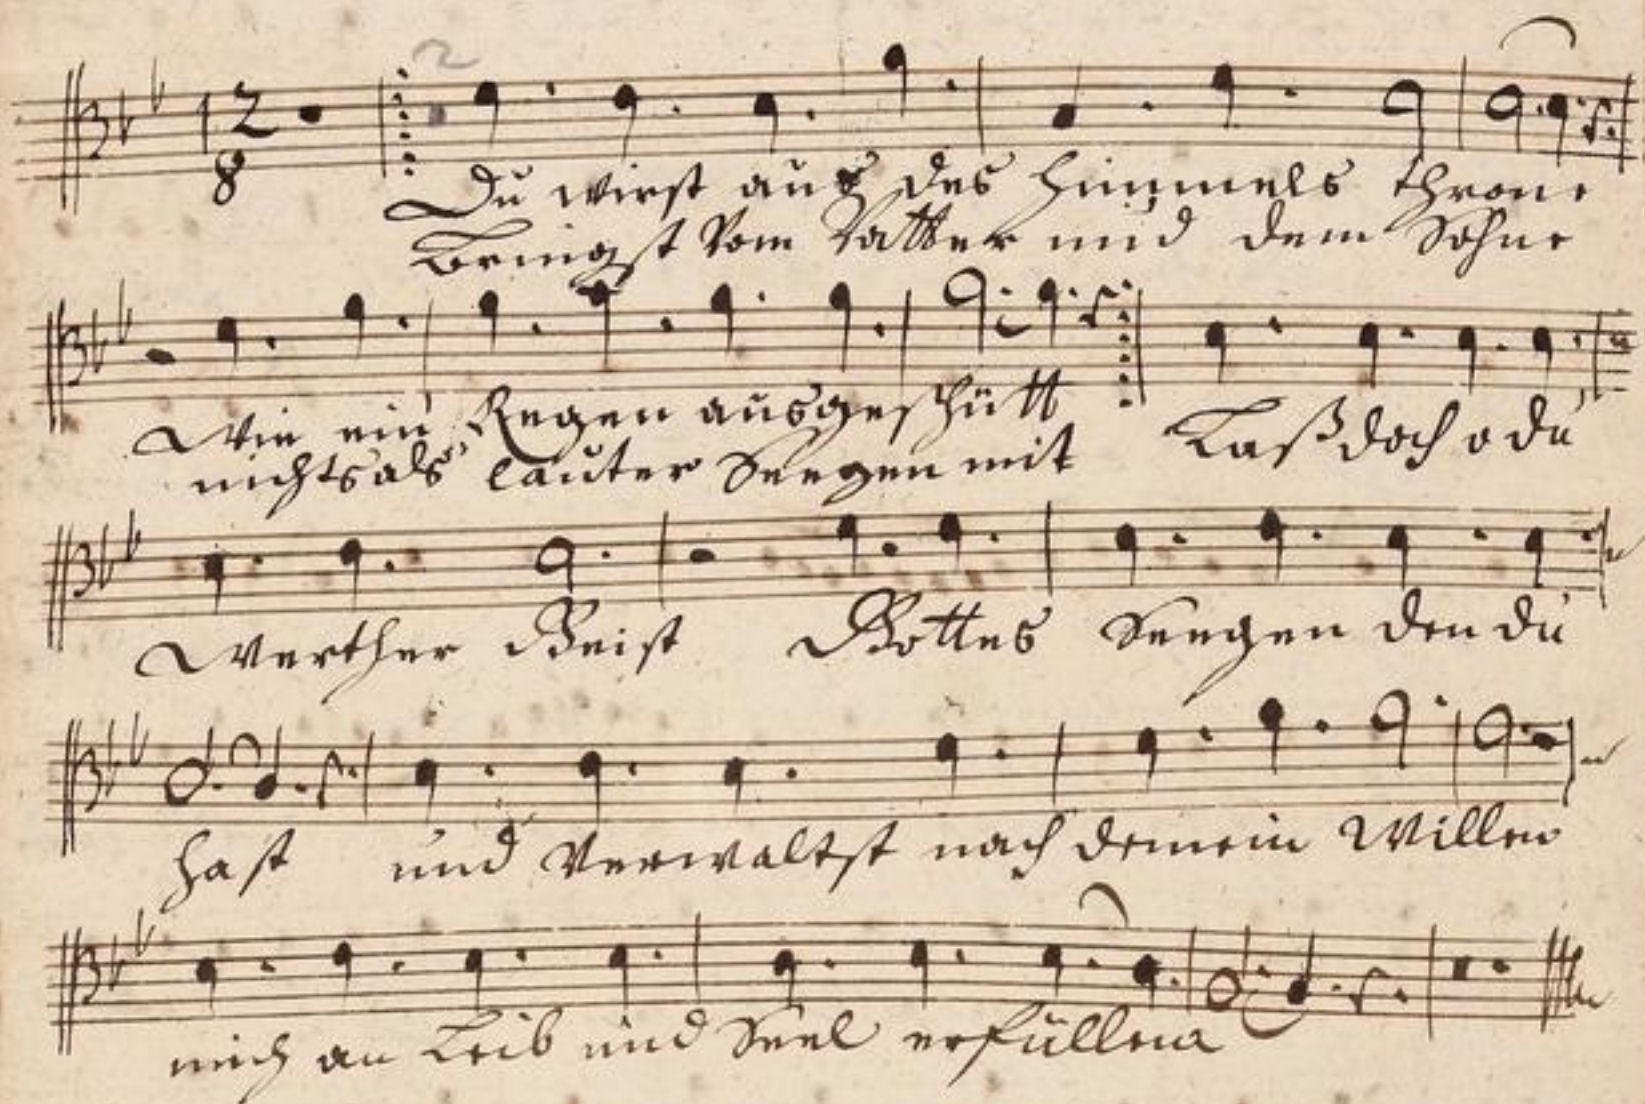 2
12
8
Du wirst aus des Himmels throne
Bringst Vom Vatter und dem Sohne
Wie ein Regen ausgeschütt
nichts als lauter Seegen mit Laß doch o du
Werther Geist Gottes Seegen den du
hast und Verwaltst nach deinem Willen
mich an Leib und Seel erfüllen